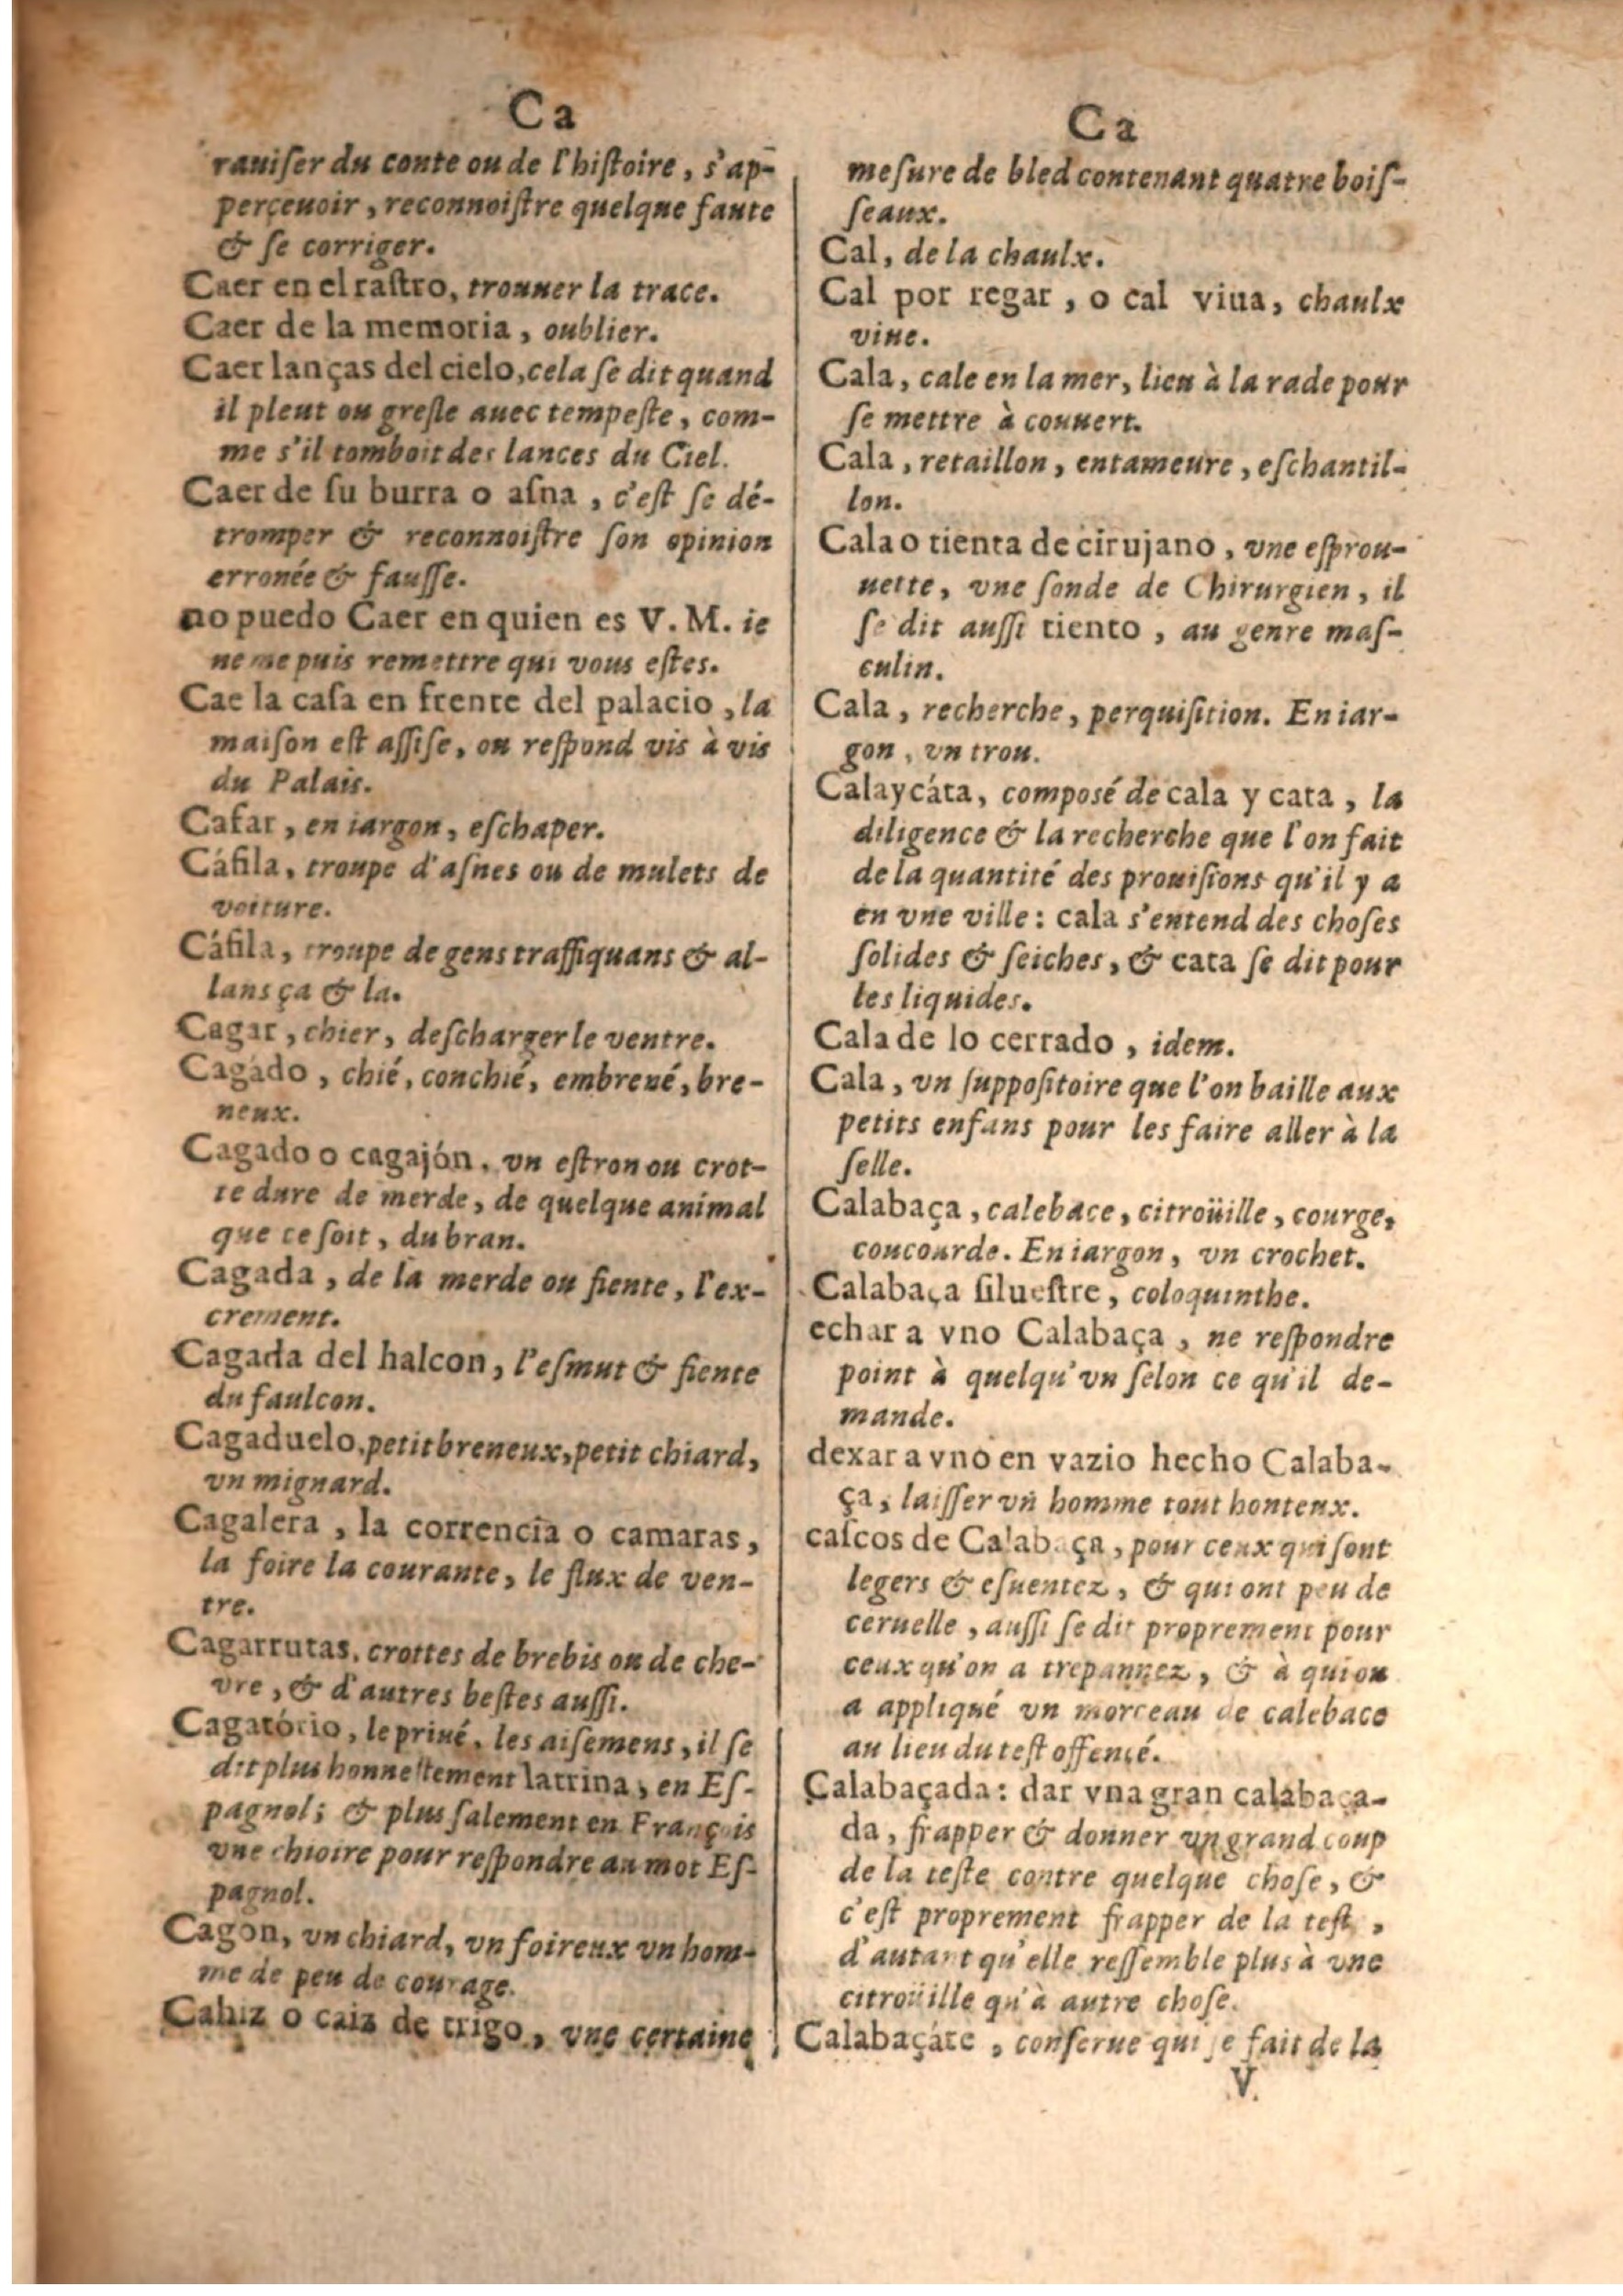 Ca
rauiſer du conte ou de l'hiſtoire, s'ap-
perçeuoir, reconnoiſtre quelque faute
& ſe corriger.
Caer en el raſtro, trouuer la trace.
Caer de la memoria, oublier.
Caer lanças del cielo, cela ſe dit quand
il pleut ou greſle auec tempeſte, com-
me s'il tomboit des lances du Ciel.
Caer de ſu burra o aſna, c'eſt ſe dé-
tromper & reconnoiſtre ſon opinion
erronée & fauſſe.
no puedo Caer en quien es V. M. ie
ne me puis remettre qui vous eſtes.
Cae la caſa en frente del palacio, la
maiſon eſt aſſiſe, ou reſpond vis à vis
du Palais.
Cafar, en iargon, eſchaper.
Cáfila, troupe d'aſnes ou de mulets de
voiture.
Cáfila, troupe de gens traffiquans & al-
lans ça & la.
Cagar, chier, deſcharger le ventre.
Cagádo, chié, conchié, embrené, bre-
neux.
Cagado o cagajón, vn eſtron ou crot-
te dure de merde, de quelque animal
que ce ſoit, du bran.
Cagada, de la merde ou fiente, l'ex-
crement.
Cagada del halcon, l'eſmut & fiente
du faulcon.
Cagaduelo, petit breneux, petit chiard,
vn mignard.
Cagalera, la correncia o camaras,
la foire la courante, le flux de ven-
tre.
Cagarrutas, crottes de brebis ou de che-
vre, & d'autres beſtes auſſi.
Cagatório, le priué, les aiſemens, il ſe
dit plus honneſtement latrina, en Eſ-
pagnol; & plus ſalement en François
vne chioire pour reſpondre au mot Eſ-
pagnol.
Cagon, vn chiard, vn foireux vn hom-
me de peu de courage.
Cahiz o caiz de trigo, vne certaine
Ca
meſure de bled contenant quatre boiſ-
ſeaux.
Cal, de la chaulx.
Cal por regar, o cal viua, chaulx
viue.
Cala, cale en la mer, lieu à la rade pour
ſe mettre à couuert.
Cala, retaillon, entameure, eſchantil-
lon.
Cala o tienta de cirujano, vne eſprou-
uette, vne ſonde de Chirurgien, il
ſe dit auſſi tiento, au genre maſ-
culin.
Cala, recherche, perquiſition. En iar-
gon, vn trou.
Calaycáta, compoſé de cala y cata, la
diligence & la recherche que l'on fait
de la quantité des prouiſions qu'il y a
en vne ville: cala s'entend des choſes
ſolides & ſeiches, & cata ſe dit pour
les liquides.
Cala de lo cerrado, idem.
Cala, vn ſuppoſitoire que l'on baille aux
petits enfans pour les faire aller à la
ſelle.
Calabaça, calebace, citroüille, courge,
coucourde. En iargon, vn crochet.
Calabaça ſilueſtre, coloquinthe.
echar a vno Calabaça, ne reſpondre
point à quelqu'vn ſelon ce qu'il de-
mande.
dexar a vno en vazio hecho Calaba-
ça, laiſſer vn homme tout honteux.
caſcos de Calabaça, pour ceux qui ſont
legers & eſuentez, & qui ont peu de
ceruelle, auſſi ſe dit proprement pour
ceux qu'on a trepannez, & à qui on
a appliqué vn morceau de calebace
au lieu du teſt offencé.
Calabaçada: dar vna gran calabaça-
da, frapper & donner vn grand coup
de la teſte contre quelque choſe, &
c'eſt proprement frapper de la teſte,
d'autant qu'elle reſſemble plus à vne
citroüille qu'à autre choſe.
Calabaçáte, conſerue qui ſe fait de la
V.